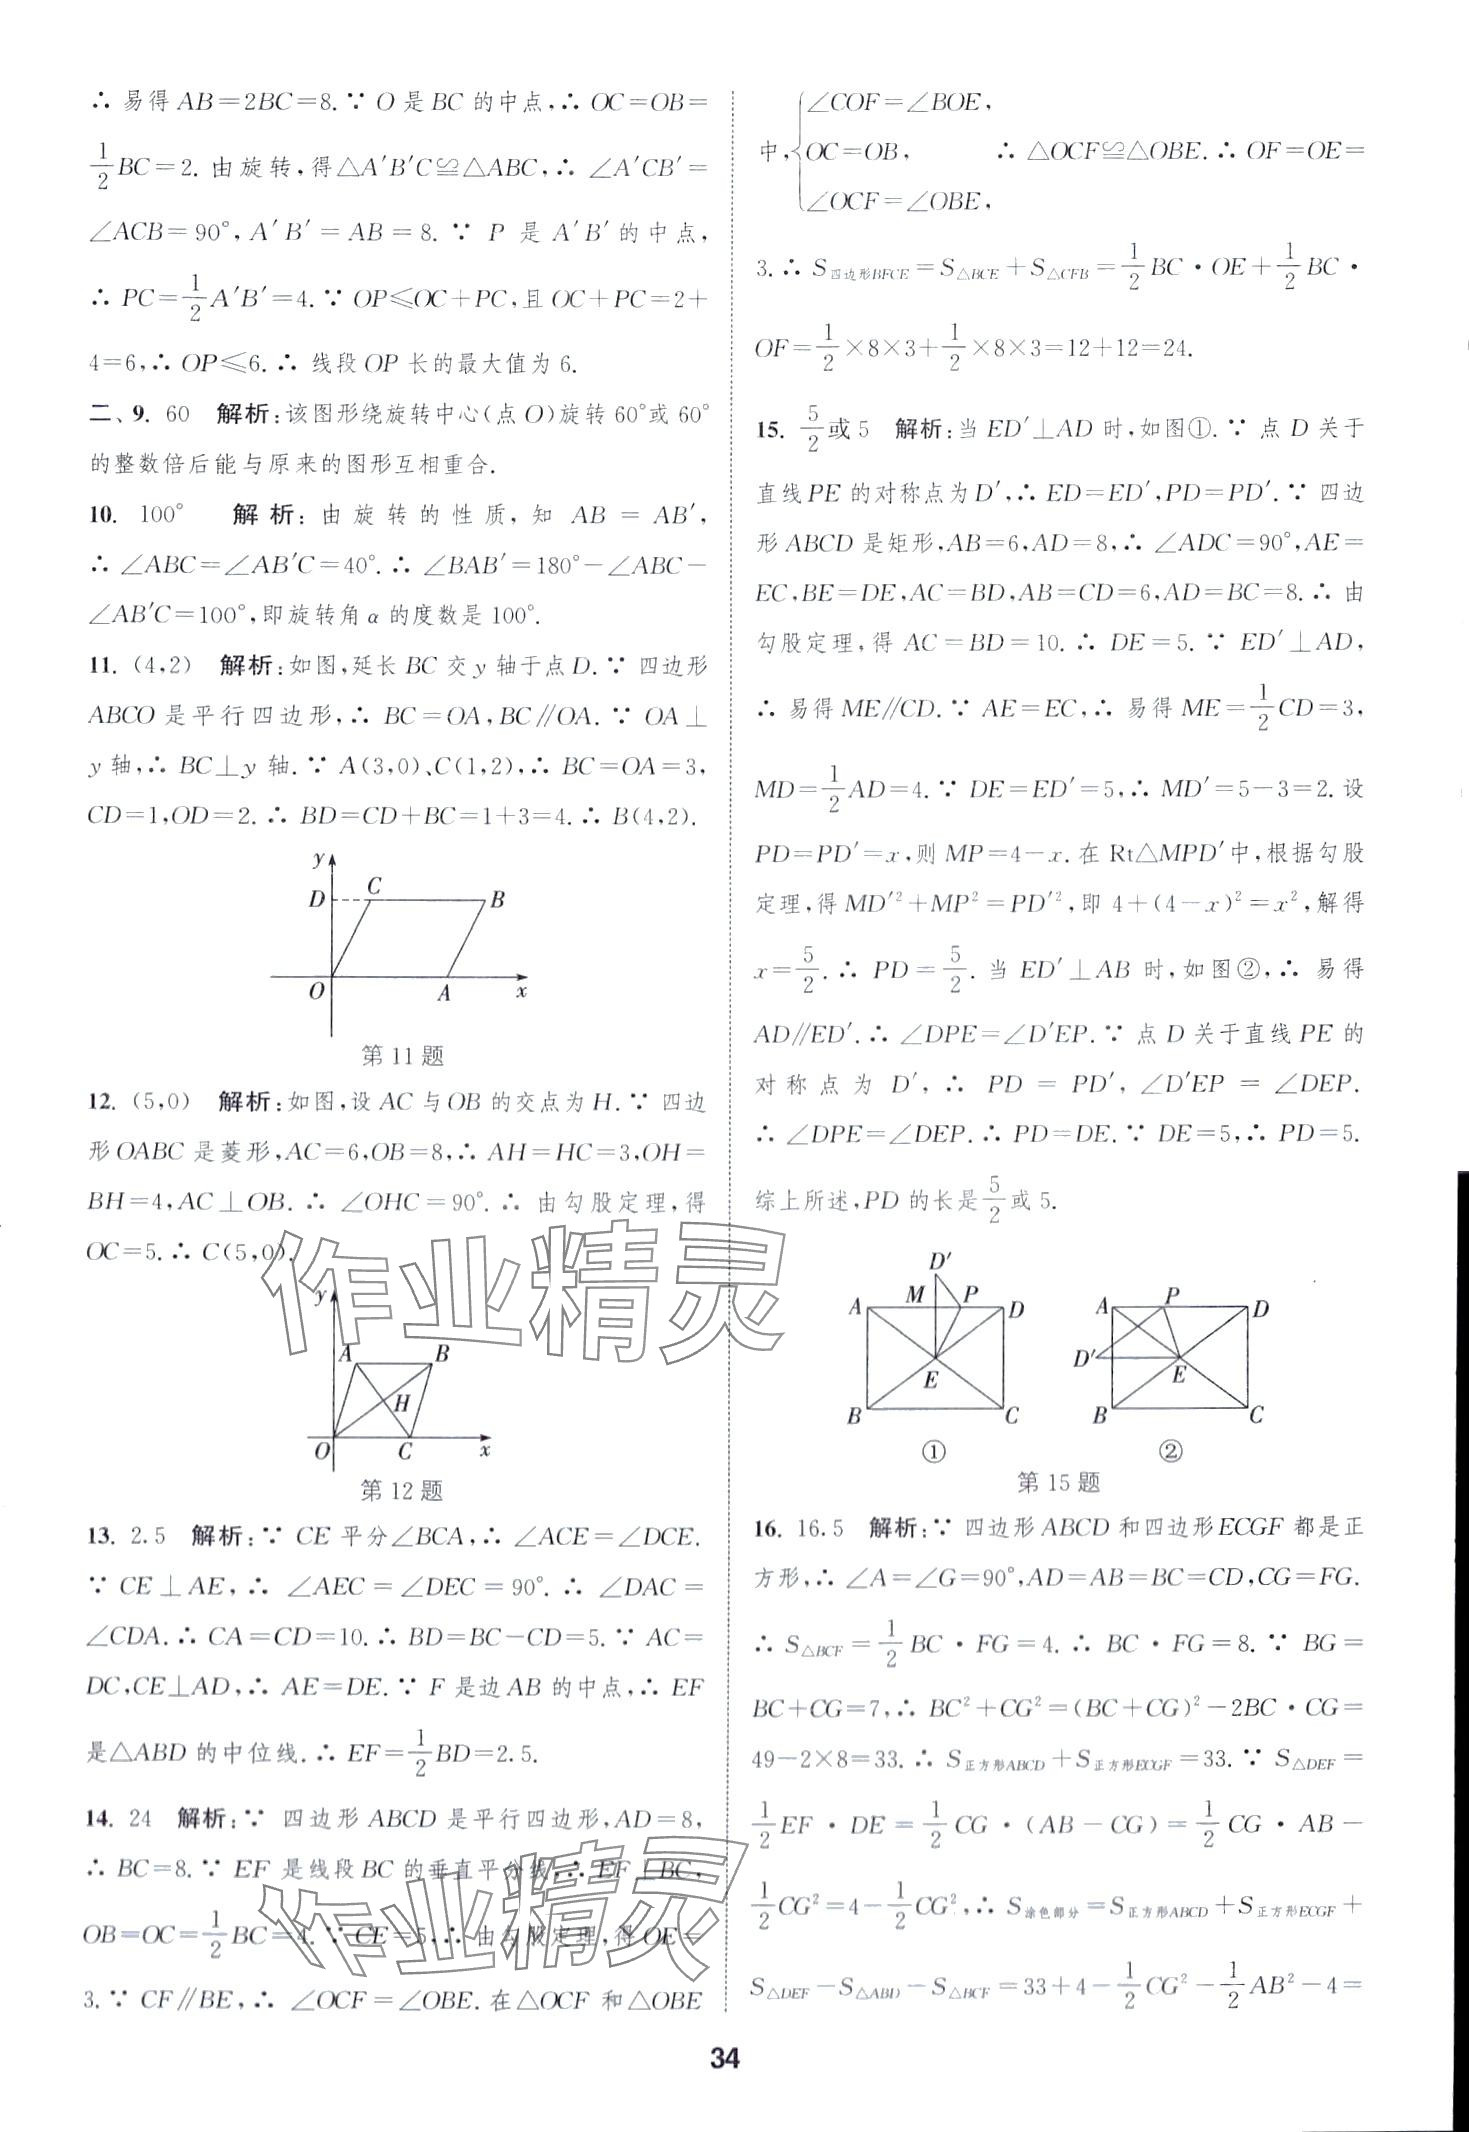 ∴ 易得 AB=2BC=8.∵ O 是 BC 的中点,∴ OC=OB=
1/2 BC=2. 由旋转,得△A′B′C≌△ABC,∴ ∠A′CB′=
∠ACB=90°,A′B′=AB=8.∵ P 是 A′B′的中点,
∴ PC=1/2 A′B′=4.∵ OP≤OC+PC,且 OC+PC=2+
4=6,∴ OP≤6.∴ 线段 OP 长的最大值为 6.
二、9. 60 解析:该图形绕旋转中心(点 O)旋转 60°或 60°
的整数倍后能与原来的图形互相重合.
10. 100° 解析:由旋转的性质,知 AB=AB′,
∴ ∠ABC=∠AB′C=40°.∴ ∠BAB′=180°-∠ABC-
∠AB′C=100°,即旋转角 α 的度数是 100°.
11. (4,2) 解析:如图,延长 BC 交 y 轴于点 D.∵ 四边形
ABCO 是平行四边形,∴ BC=OA,BC∥OA.∵ OA⊥
y 轴,∴ BC⊥y 轴.∵ A(3,0)、C(1,2),∴ BC=OA=3,
CD=1,OD=2.∴ BD=CD+BC=1+3=4.∴ B(4,2).
y
D C B
O A x
第 11 题
12. (5,0) 解析:如图,设 AC 与 OB 的交点为 H.∵ 四边
形 OABC 是菱形,AC=6,OB=8,∴ AH=HC=3,OH=
BH=4,AC⊥OB.∴ ∠OHC=90°.∴ 由勾股定理,得
OC=5.∴ C(5,0).
作业精灵
y
A B
H
O C x
第 12 题
13. 2.5 解析:∵ CE 平分∠BCA,∴ ∠ACE=∠DCE.
∵ CE⊥AE,∴ ∠AEC=∠DEC=90°.∴ ∠DAC=
∠CDA.∴ CA=CD=10.∴ BD=BC-CD=5.∵ AC=
DC,CE⊥AD,∴ AE=DE.∵ F 是边 AB 的中点,∴ EF
是△ABD 的中位线.∴ EF=1/2 BD=2.5.
14. 24 解析:∵ 四边形 ABCD 是平行四边形,AD=8,
∴ BC=8.∵ EF 是线段 BC 的垂直平分线,∴ EF⊥BC,
OB=OC=1/2 BC=4.∵ CE=5,∴ 由勾股定理,得 OE=
3.∵ CF∥BE,∴ ∠OCF=∠OBE.在△OCF 和△OBE
作业精灵
中,{∠COF=∠BOE,
OC=OB, ∴ △OCF≌△OBE.∴ OF=OE=
∠OCF=∠OBE,
3.∴ S四边形BFCE=S△BCE+S△CFB=1/2 BC·OE+1/2 BC·
OF=1/2×8×3+1/2×8×3=12+12=24.
15. 5/2 或 5 解析:当 ED′⊥AD 时,如图①.∵ 点 D 关于
直线 PE 的对称点为 D′,∴ ED=ED′,PD=PD′.∵ 四边
形 ABCD 是矩形,AB=6,AD=8,∴ ∠ADC=90°,AE=
EC,BE=DE,AC=BD,AB=CD=6,AD=BC=8.∴ 由
勾股定理,得 AC=BD=10.∴ DE=5.∵ ED′⊥AD,
∴ 易得 ME∥CD.∵ AE=EC,∴ 易得 ME=1/2 CD=3,
MD=1/2 AD=4.∵ DE=ED′=5,∴ MD′=5-3=2.设
PD=PD′=x,则 MP=4-x.在 Rt△MPD′中,根据勾股
定理,得 MD′²+MP²=PD′²,即 4+(4-x)²=x²,解得
x=5/2.∴ PD=5/2.当 ED′⊥AB 时,如图②,∴ 易得
AD∥ED′.∴ ∠DPE=∠D′EP.∵ 点 D 关于直线 PE 的
对称点为 D′,∴ PD=PD′,∠D′EP=∠DEP.
∴ ∠DPE=∠DEP.∴ PD=DE.∵ DE=5,∴ PD=5.
综上所述,PD 的长是 5/2 或 5.
D′
A M P D
E
B C
①
A P D
D′ E
B C
②
第 15 题
16. 16.5 解析:∵ 四边形 ABCD 和四边形 ECGF 都是正
方形,∴ ∠A=∠G=90°,AD=AB=BC=CD,CG=FG.
∴ S△BCF=1/2 BC·FG=4.∴ BC·FG=8.∵ BG=
BC+CG=7,∴ BC²+CG²=(BC+CG)²-2BC·CG=
49-2×8=33.∴ S正方形ABCD+S正方形ECGF=33.∵ S△DEF=
1/2 EF·DE=1/2 CG·(AB-CG)=1/2 CG·AB-
1/2 CG²=4-1/2 CG²,∴ S涂色部分=S正方形ABCD+S正方形ECGF+
S△DEF-S△ABD-S△BCF=33+4-1/2 CG²-1/2 AB²-4=
34